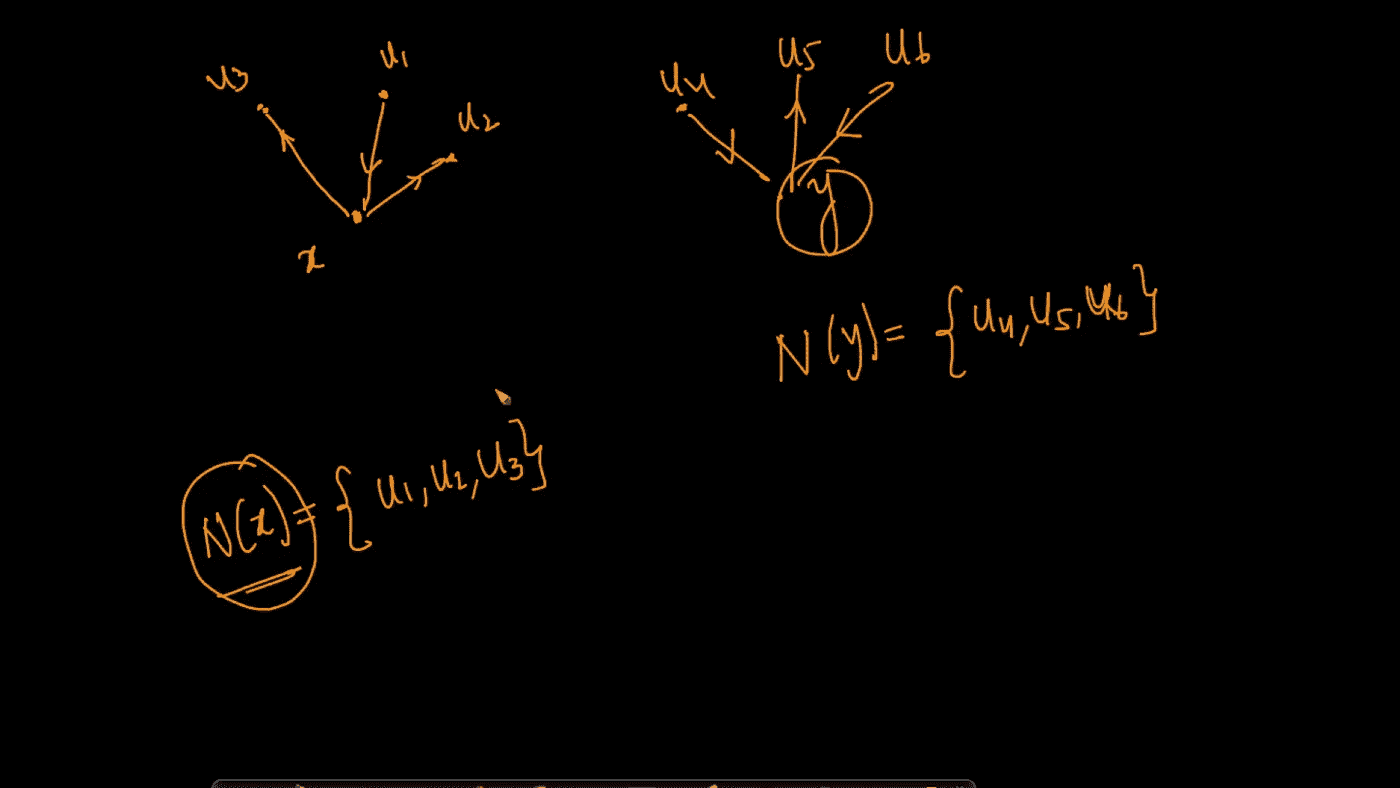 u3
u1
u2
x
u4
u5
u6
y
N(y) = {u4, u5, u6}
N(x) = {u1, u2, u3}